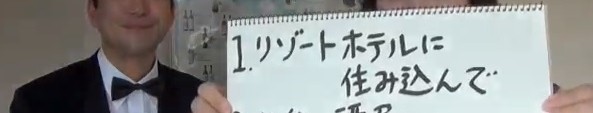 1.リゾートホテルに
住み込んで